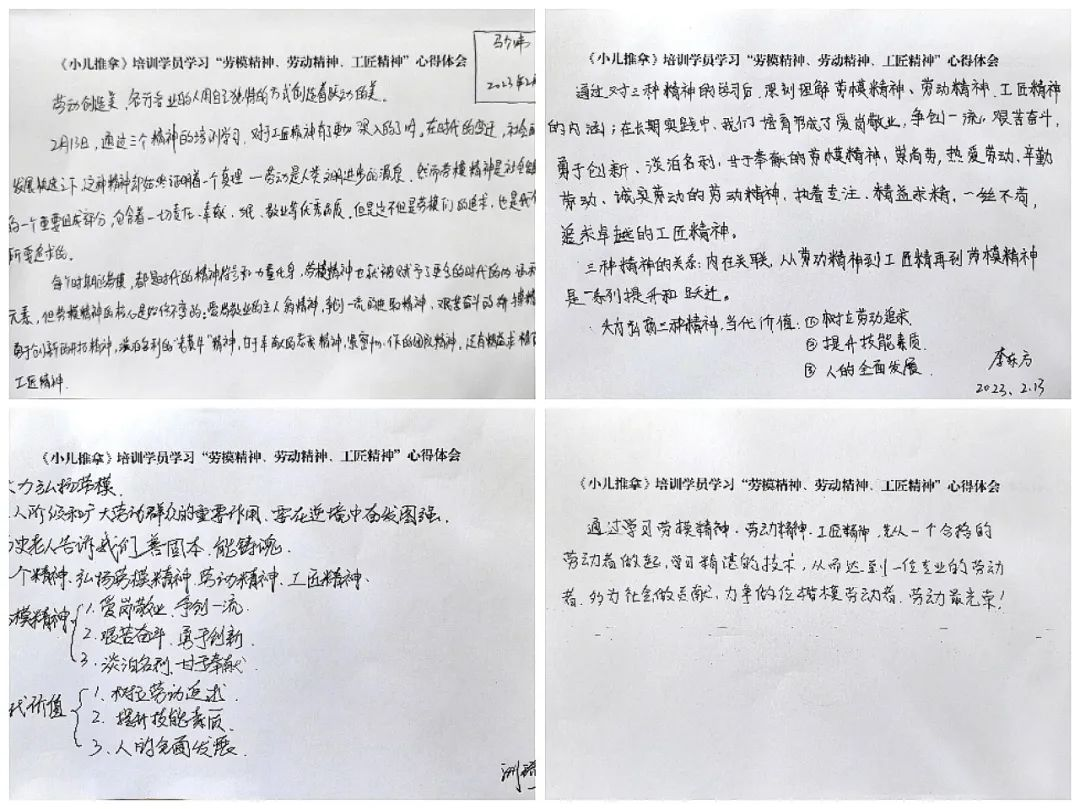 《小儿推拿》培训学员学习“劳模精神、劳动精神、工匠精神”心得体会
劳动创造美,各行各业的人用自己独特的方式创造着劳动的美。
2月13日,通过三个精神的培训学习,对于工匠精神有了更加深入的了解。在时代的变迁,社会
发展轨迹下,这种精神却始终证明着一个真理—劳动是人类文明进步的源泉。然而劳模精神是社会
的一个重要组成部分,包含着一切责任、奉献、敬业等优秀品质,但是这不但是劳模们的追求,也是我们
所要追求的。
每个时期的劳模,都是时代的精神符号和力量化身,劳模精神也就被赋予了更全的时代的内涵和
元素,但劳模精神的核心是始终不变的:爱岗敬业的主人翁精神,争创一流的进取精神、艰苦奋斗的拼搏精神
勇于创新的开拓精神,淡泊名利的“老黄牛”精神,甘于奉献的忘我精神,紧密协作的团队精神,还有精益求精的
工匠精神.
《小儿推拿》培训学员学习“劳模精神、劳动精神、工匠精神”心得体会
通过对三种精神的学习后,深刻理解劳模精神、劳动精神、工匠精神
的内涵;在长期实践中,我们培育形成了爱岗敬业,争创一流,艰苦奋斗,
勇于创新、淡泊名利,甘于奉献的劳模精神,崇尚劳,热爱劳动、辛勤
劳动、诚实劳动的劳动精神,执着专注、精益求精,一丝不苟,
追求卓越的工匠精神。
三种精神的关系:内在关联,从劳动精神到工匠精再到劳模精神
是一系列提升和跃迁。
大力弘扬三种精神,当代价值:①树立劳动追求
②提升技能素质.
③人的全面发展.
李东方
2023、2.13
《小儿推拿》培训学员学习“劳模精神、劳动精神、工匠精神”心得体会
力弘扬劳模.
人阶级和广大劳动群众的重要作用,要在逆境中奋发图强.
史老人告诉我们,善固本,能铸魂.
个精神、弘扬劳模精神、劳动精神、工匠精神、
模精神 1. 爱岗敬业、争创一流.
2. 艰苦奋斗、勇于创新.
3. 淡泊名利、甘于奉献
代价值 1. 树立劳动追求.
2. 提升技能素质.
3、人的全面发展.
《小儿推拿》培训学员学习“劳模精神、劳动精神、工匠精神”心得体会
通过学习劳模精神、劳动精神、工匠精神,先从一个合格的
劳动者做起,学习精湛的技术,从而达到一位专业的劳动
者,多为社会做贡献,力争做位楷模劳动者,劳动最光荣!